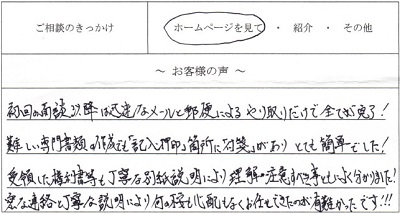 ご相談のきっかけ ホームページを見て ・ 紹介 ・ その他
～ お客様の声 ～
初回の面談以降は迅速なメールと郵便によるやり取りだけで全てが完了！
難しい専門書類の作成も「記入・押印」箇所に付箋があり とても簡単でした！
受領した権利書等も丁寧な別紙説明により理解・注意すべき事もよく分かりました！
急な連絡と丁寧な説明により何の心配もなくお任せできたのが有難かったです!!!